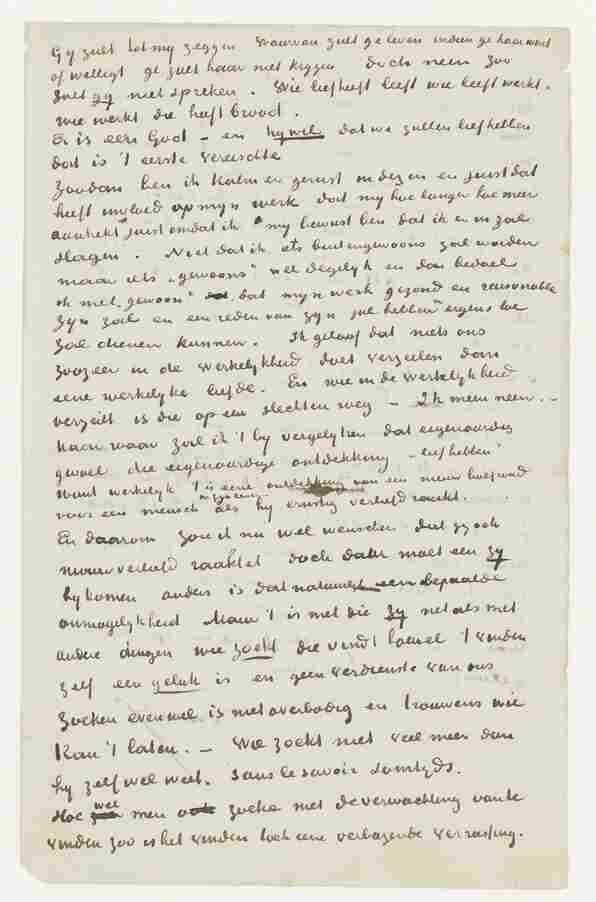 Gy zult tot my zeggen waarvan zult ge leven indien ge haar wint
of wellicht ge zult haar niet krijgen doch neen zoo
zult gy niet spreken. Wie liefheeft leeft wie leeft werkt.
wie werkt die heeft brood.
Er is een God – en hy wil dat we zullen liefhebben
dat is 't eerste vereischte
Zoodan ben ik kalm en gerust in dezen en juist dat
heeft invloed op myn werk dat my hoe langer hoe meer
aantrekt juist omdat ik my bewust ben dat ik er in zal
slagen. Niet dat ik iets buitengewoons zal worden
maar iets „gewoons" wel degelyk en dan bedoel
ik met „gewoon" dat myn werk gezond en raisonnable
zyn zal en een reden van zyn zal hebben en ergens toe
zal dienen kunnen. Ik geloof dat niets ons
zoozeer in de werkelykheid doet verzeilen dan
eene werkelyke liefde. En wie in de werkelykheid
verzeilt is die op een slechten weg – Ik meen neen. –
Maar waar zal ik 't by vergelyken dat eigenaardig
gevoel die eigenaardige ontdekking – „liefhebben"
want werkelyk 't is eene ontdekking van een nieuw halfrond
voor een mensch als hy ernstig verliefd raakt.
En daarom zou ik nu wel wenschen dat gy ook
maar verliefd raaktet doch daar moet een zy
by komen anders is dat natuurlyk een bepaalde
onmogelykheid Maar 't is met die zy net als met
andere dingen wie zoekt die vindt hoewel 't vinden
zelf een geluk is en geen verdienste van ons
Zoeken evenwel is niet overbodig en trouwens wie
kan 't laten. – Wie zoekt niet veel meer dan
hy zelf wel weet. Sans le savoir somtyds.
Hoe wel men zoeke met de verwachting van te
vinden zoo is het vinden toch eene verbazende verrassing.